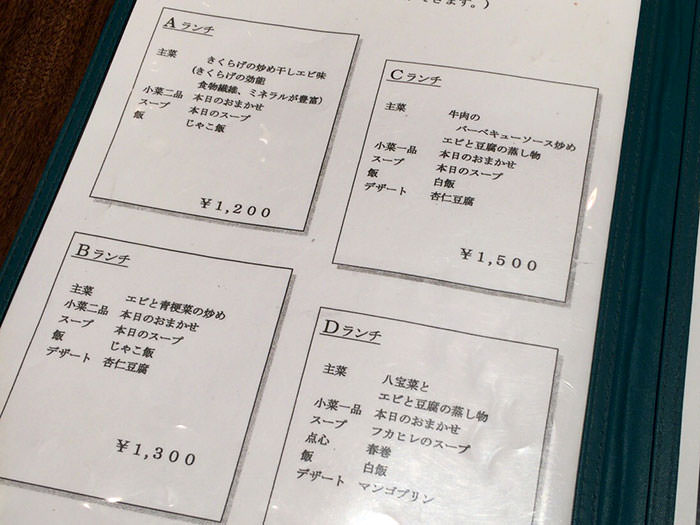 できます。)
Aランチ
主菜 きくらげの炒め干しエビ味
(きくらげの効能
食物繊維、ミネラルが豊富)
小菜二品 本日のおまかせ
スープ 本日のスープ
飯 じゃこ飯
¥1,200
Bランチ
主菜 エビと青梗菜の炒め
小菜二品 本日のおまかせ
スープ 本日のスープ
飯 じゃこ飯
デザート 杏仁豆腐
¥1,300
Cランチ
主菜 牛肉の
バーベキューソース炒め
エビと豆腐の蒸し物
小菜一品 本日のおまかせ
スープ 本日のスープ
飯 白飯
デザート 杏仁豆腐
¥1,500
Dランチ
主菜 八宝菜と
エビと豆腐の蒸し物
小菜一品 本日のおまかせ
スープ フカヒレのスープ
点心 春巻
飯 白飯
デザート マンゴプリン